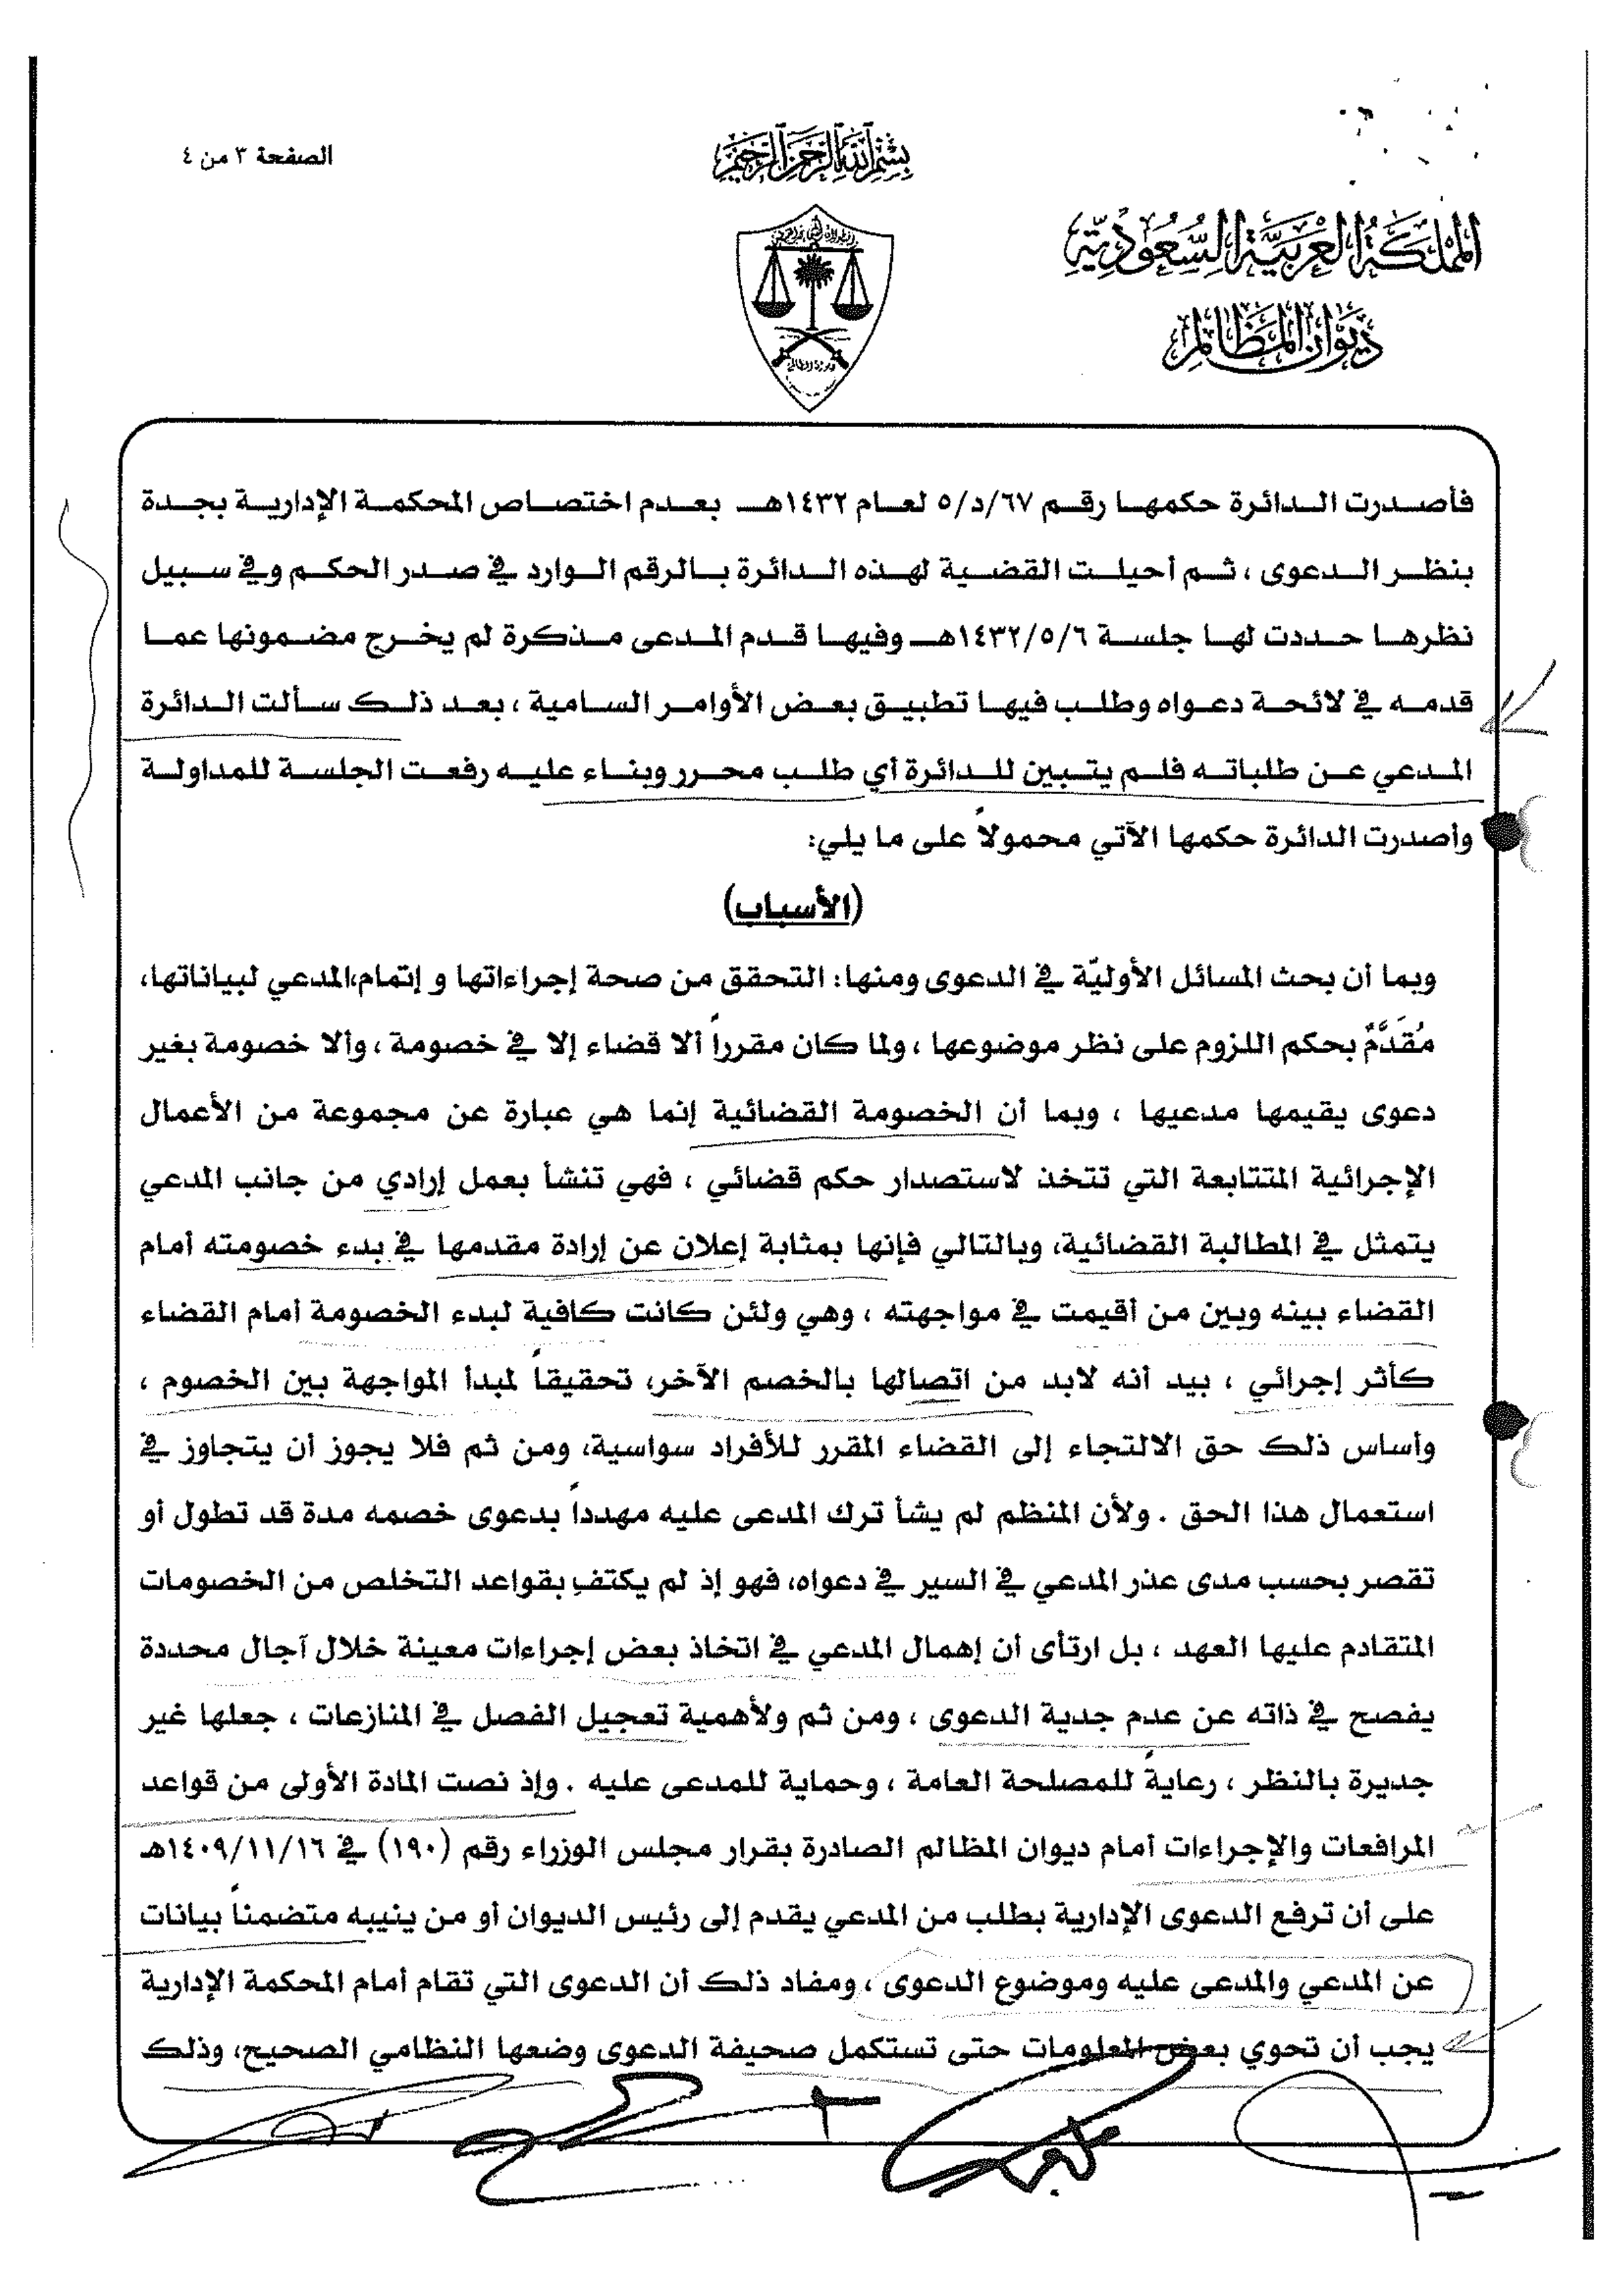 الصفحة ٣ من ٤
بسم الله الرحمن الرحيم
المملكة العربية السعودية
ديوان المظالم
فأصدرت الدائرة حكمها رقم ٦٧/د/٥ لعام ١٤٣٢هـ بعدم اختصاص المحكمة الإدارية بجدة
بنظر الدعوى ، ثم أحيلت القضية لهذه الدائرة بالرقم الوارد في صدر الحكم وفي سبيل
نظرها حددت لها جلسة ١٤٣٢/٥/٦هـ وفيها قدم المدعى مذكرة لم يخرج مضمونها عما
قدمه في لائحة دعواه وطلب فيها تطبيق بعض الأوامر السامية ، بعد ذلك سألت الدائرة
المدعي عن طلباته فلم يتبين للدائرة أي طلب محرر وبناء عليه رفعت الجلسة للمداولة
وأصدرت الدائرة حكمها الآتي محمولاً على ما يلي:
(الأسباب)
وبما أن بحث المسائل الأوليّة في الدعوى ومنها: التحقق من صحة إجراءاتها و إتمام،المدعي لبياناتها،
مُقَدَّمٌ بحكم اللزوم على نظر موضوعها ، ولما كان مقرراً ألا قضاء إلا في خصومة ، وألا خصومة بغير
دعوى يقيمها مدعيها ، وبما أن الخصومة القضائية إنما هي عبارة عن مجموعة من الأعمال
الإجرائية المتتابعة التي تتخذ لاستصدار حكم قضائي ، فهي تنشأ بعمل إرادي من جانب المدعي
يتمثل في المطالبة القضائية، وبالتالي فإنها بمثابة إعلان عن إرادة مقدمها في بدء خصومته أمام
القضاء بينه وبين من أقيمت في مواجهته ، وهي ولئن كانت كافية لبدء الخصومة أمام القضاء
كأثر إجرائي ، بيد أنه لابد من اتصالها بالخصم الآخر، تحقيقاً لمبدأ المواجهة بين الخصوم ،
وأساس ذلك حق الالتجاء إلى القضاء المقرر للأفراد سواسية، ومن ثم فلا يجوز أن يتجاوز في
استعمال هذا الحق . ولأن المنظم لم يشأ ترك المدعى عليه مهدداً بدعوى خصمه مدة قد تطول أو
تقصر بحسب مدى عذر المدعي في السير في دعواه، فهو إذ لم يكتفِ بقواعد التخلص من الخصومات
المتقادم عليها العهد ، بل ارتأى أن إهمال المدعي في اتخاذ بعض إجراءات معينة خلال آجال محددة
يفصح في ذاته عن عدم جدية الدعوى ، ومن ثم ولأهمية تعجيل الفصل في المنازعات ، جعلها غير
جديرة بالنظر ، رعايةً للمصلحة العامة ، وحماية للمدعى عليه . وإذ نصت المادة الأولى من قواعد
المرافعات والإجراءات أمام ديوان المظالم الصادرة بقرار مجلس الوزراء رقم (١٩٠) في ١٤٠٩/١١/١٦هـ
على أن ترفع الدعوى الإدارية بطلب من المدعي يقدم إلى رئيس الديوان أو من ينيبه متضمناً بيانات
عن المدعي والمدعى عليه وموضوع الدعوى ، ومفاد ذلك أن الدعوى التي تقام أمام المحكمة الإدارية
يجب أن تحوي بعض المعلومات حتى تستكمل صحيفة الدعوى وضعها النظامي الصحيح، وذلك